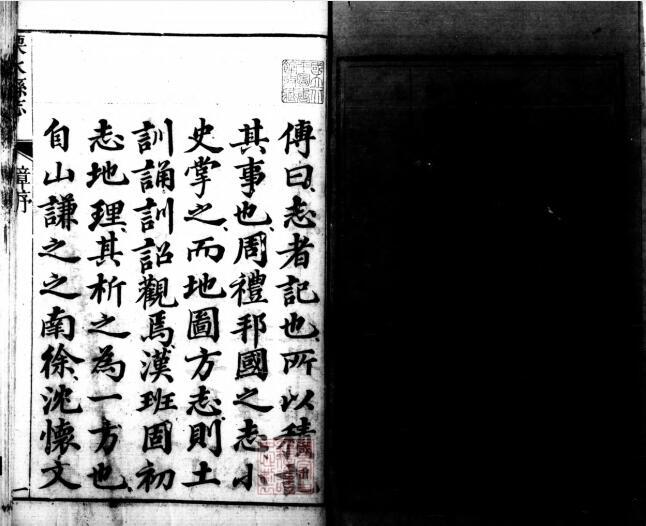 傳曰志者記也所以積記
其事也周禮邦國之志小
史掌之而地圖方志則土
訓誦訓詔觀焉漢班固初
志地理其析之為一方也
自山謙之之南徐沈懷文
水縣志
序